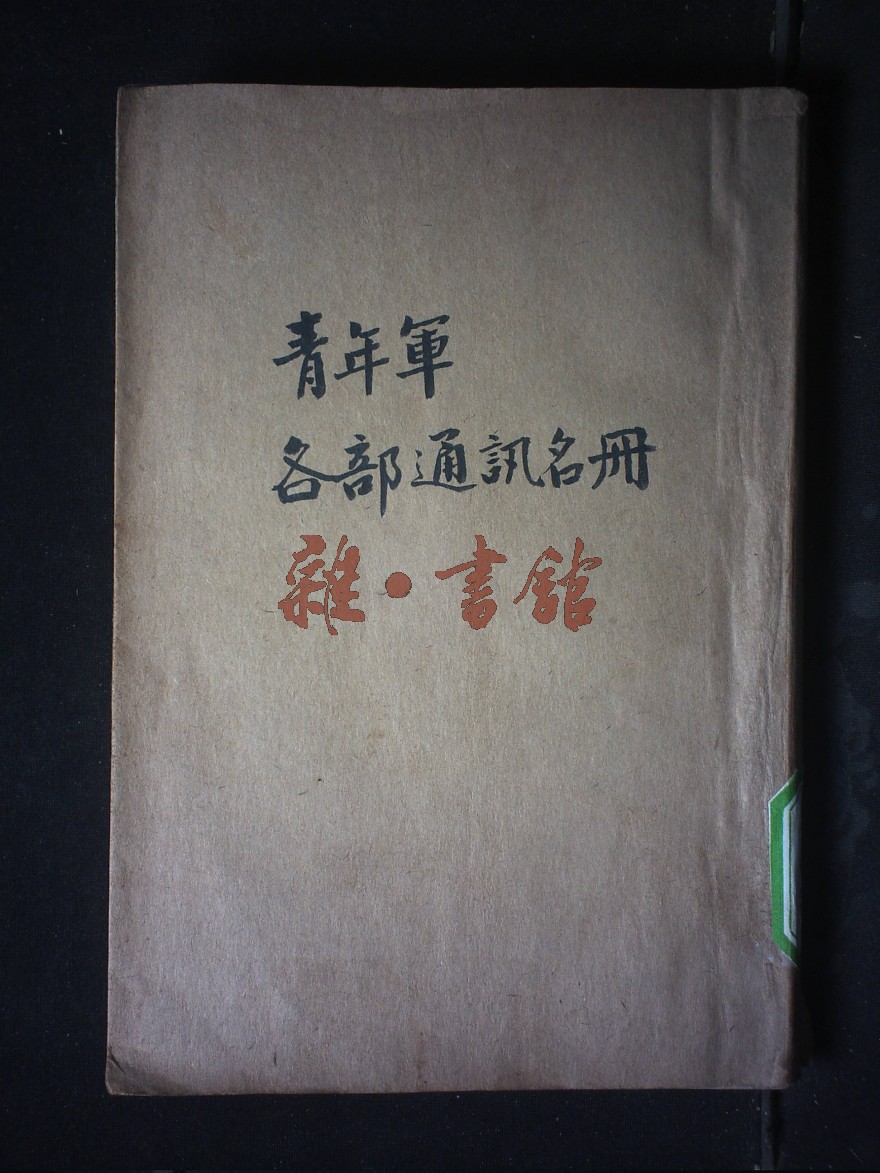 青年軍
各部通訊名冊
雜·書館